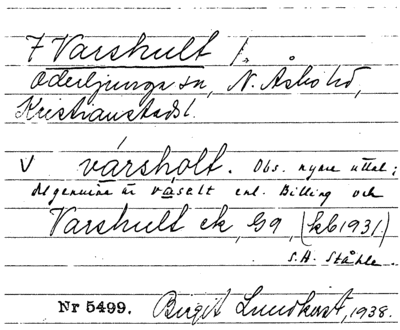 7 Varshult f.
Oderljunga sn, N. Åsbo hd,
Kristianstads l.
v vársholt. Obs. nyare uttal;
det genuina är vásalt enl. Billing och
Varshult ek, G9, (kb 1931.)
S.H. Ståhle.
Nr 5499. Birgit Lundkvist, 1938.